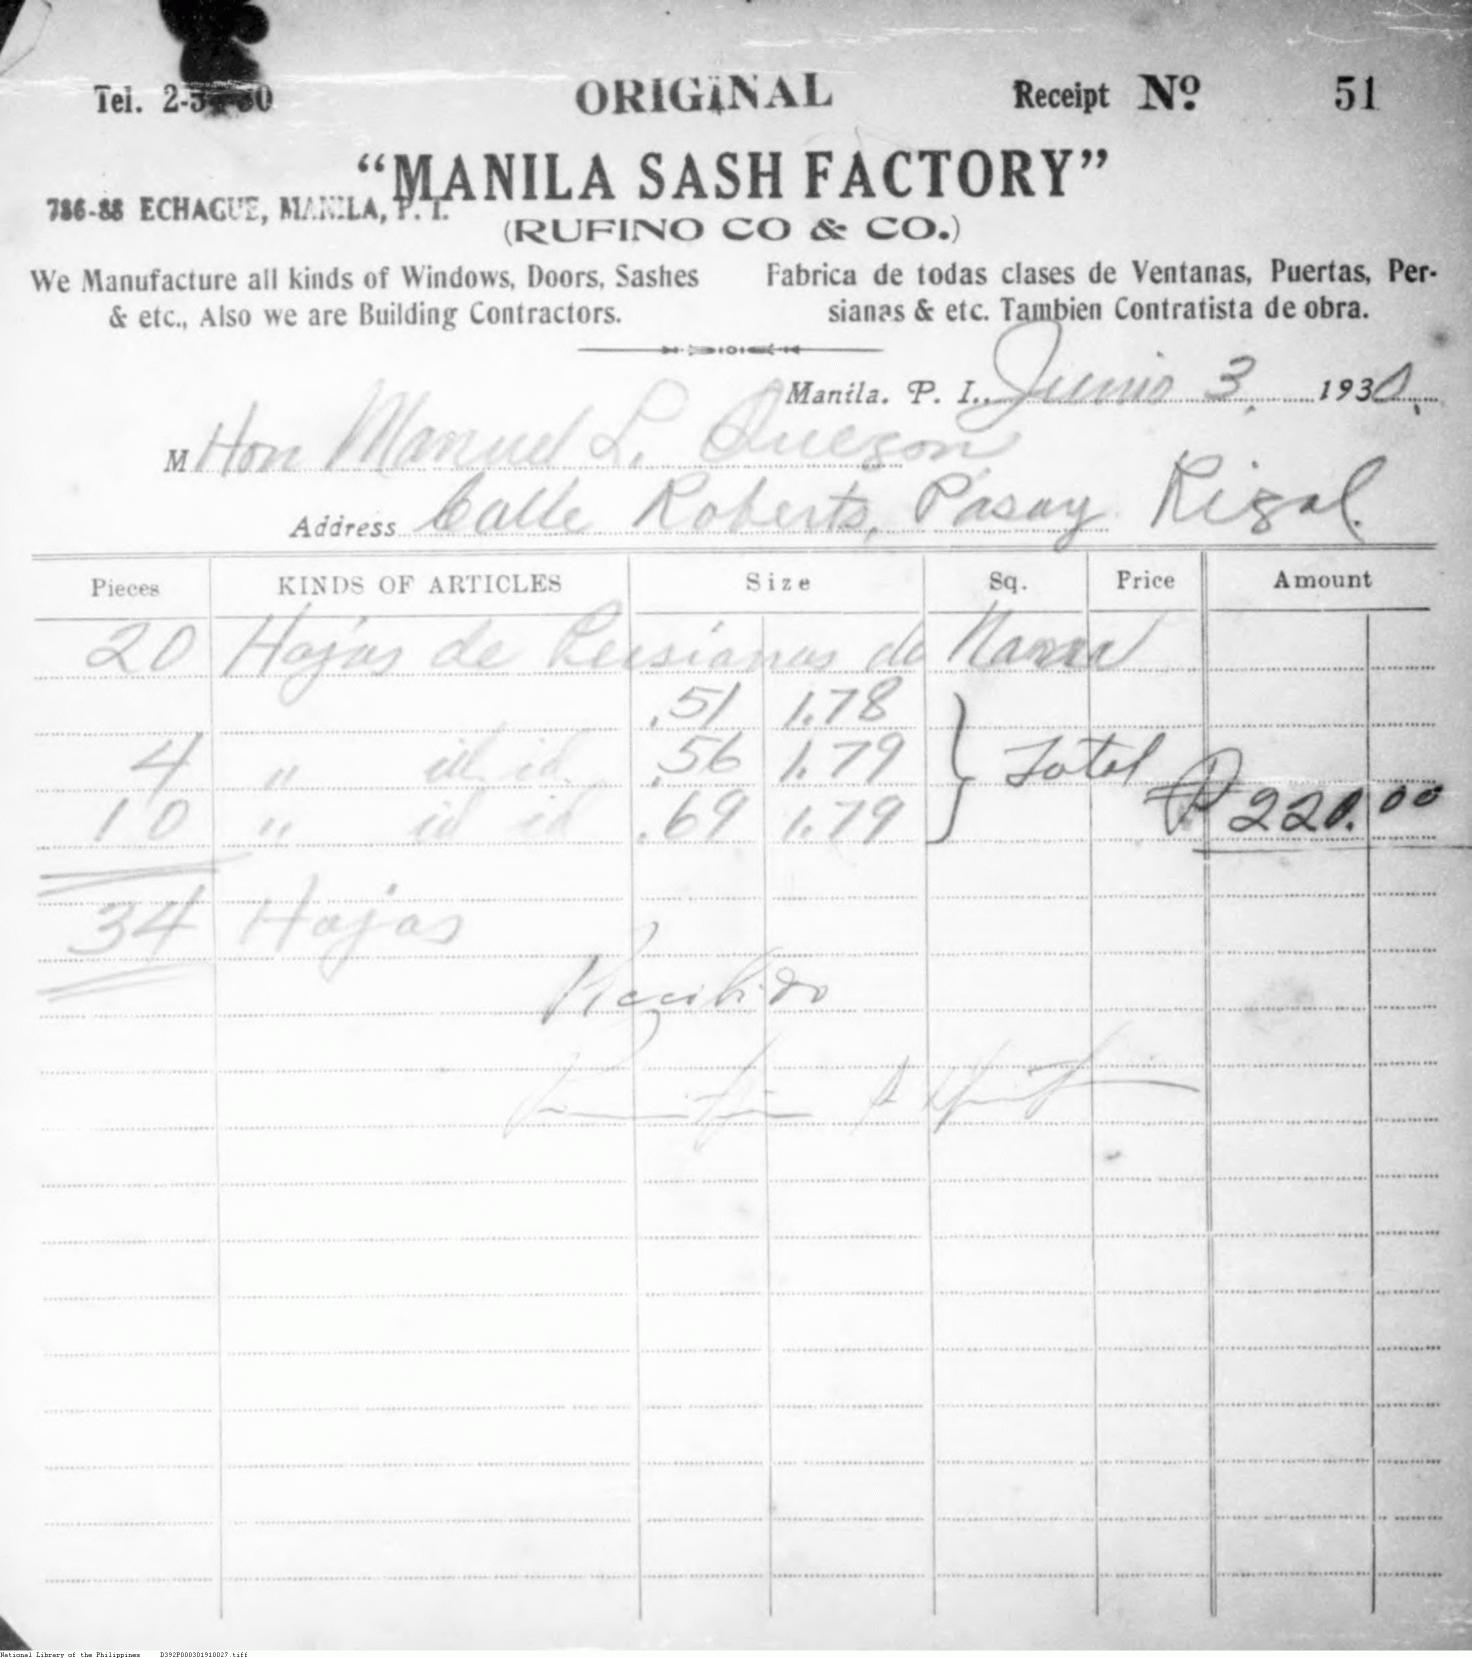 Tel. 2-
ORIGINAL
Receipt Nº 51
"MANILA SASH FACTORY"
786-88 ECHAGUE, MANILA, P. I.
(RUFINO CO & CO.)
We Manufacture all kinds of Windows, Doors, Sashes
& etc., Also we are Building Contractors.
Fabrica de todas clases de Ventanas, Puertas, Per-
sianas & etc. Tambien Contratista de obra.
Manila. P. I., Junio 3, 193
M Hon Manuel L. Quezon
Address Calle Roberts, Pasay Rizal.
Pieces KINDS OF ARTICLES Size Sq. Price Amount
20 Hojas de Persianas de Narra
.51 1.78
4 " id. id. .56 1.79 Total
10 " id id .69 1.79 ₱220.00
34 Hojas
Recibido
National Library of the Philippines D392P000301910027.tiff